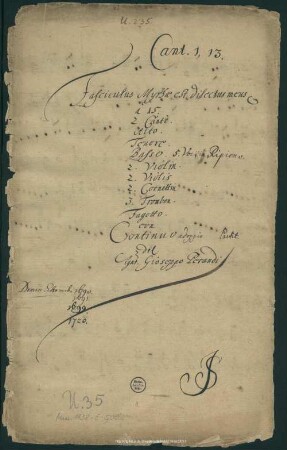 U. 235
Cant. 1, 13.
Fasciculus Myrrhæ est dilectus meus
à 15.
2. Canto
Alto
Tenore
Basso 5. Voc: in Ripieno
2. Violin
2. Violis
2. Cornettin
3. Trombon
Fagotto
con
Continuo
del
Sign. Gioseppo Perandi
1690.
1691
1699
1720.
JS
U. 35